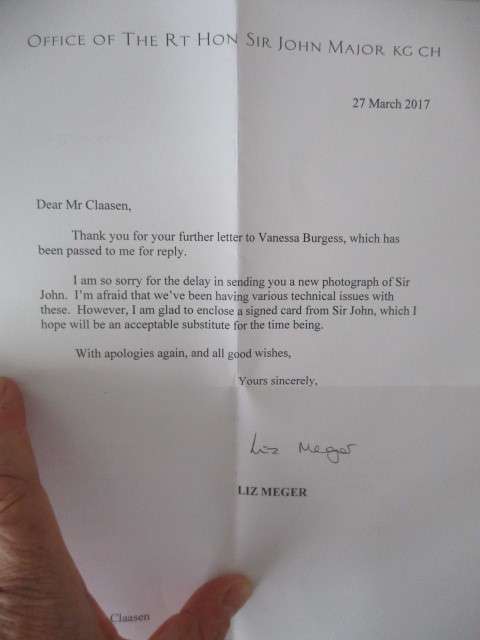 OFFICE OF THE RT HON SIR JOHN MAJOR KG CH
27 March 2017
Dear Mr Claasen,
Thank you for your further letter to Vanessa Burgess, which has
been passed to me for reply.
I am so sorry for the delay in sending you a new photograph of Sir
John. I'm afraid that we've been having various technical issues with
these. However, I am glad to enclose a signed card from Sir John, which I
hope will be an acceptable substitute for the time being.
With apologies again, and all good wishes,
Yours sincerely,
Liz Meger
LIZ MEGER
Claasen